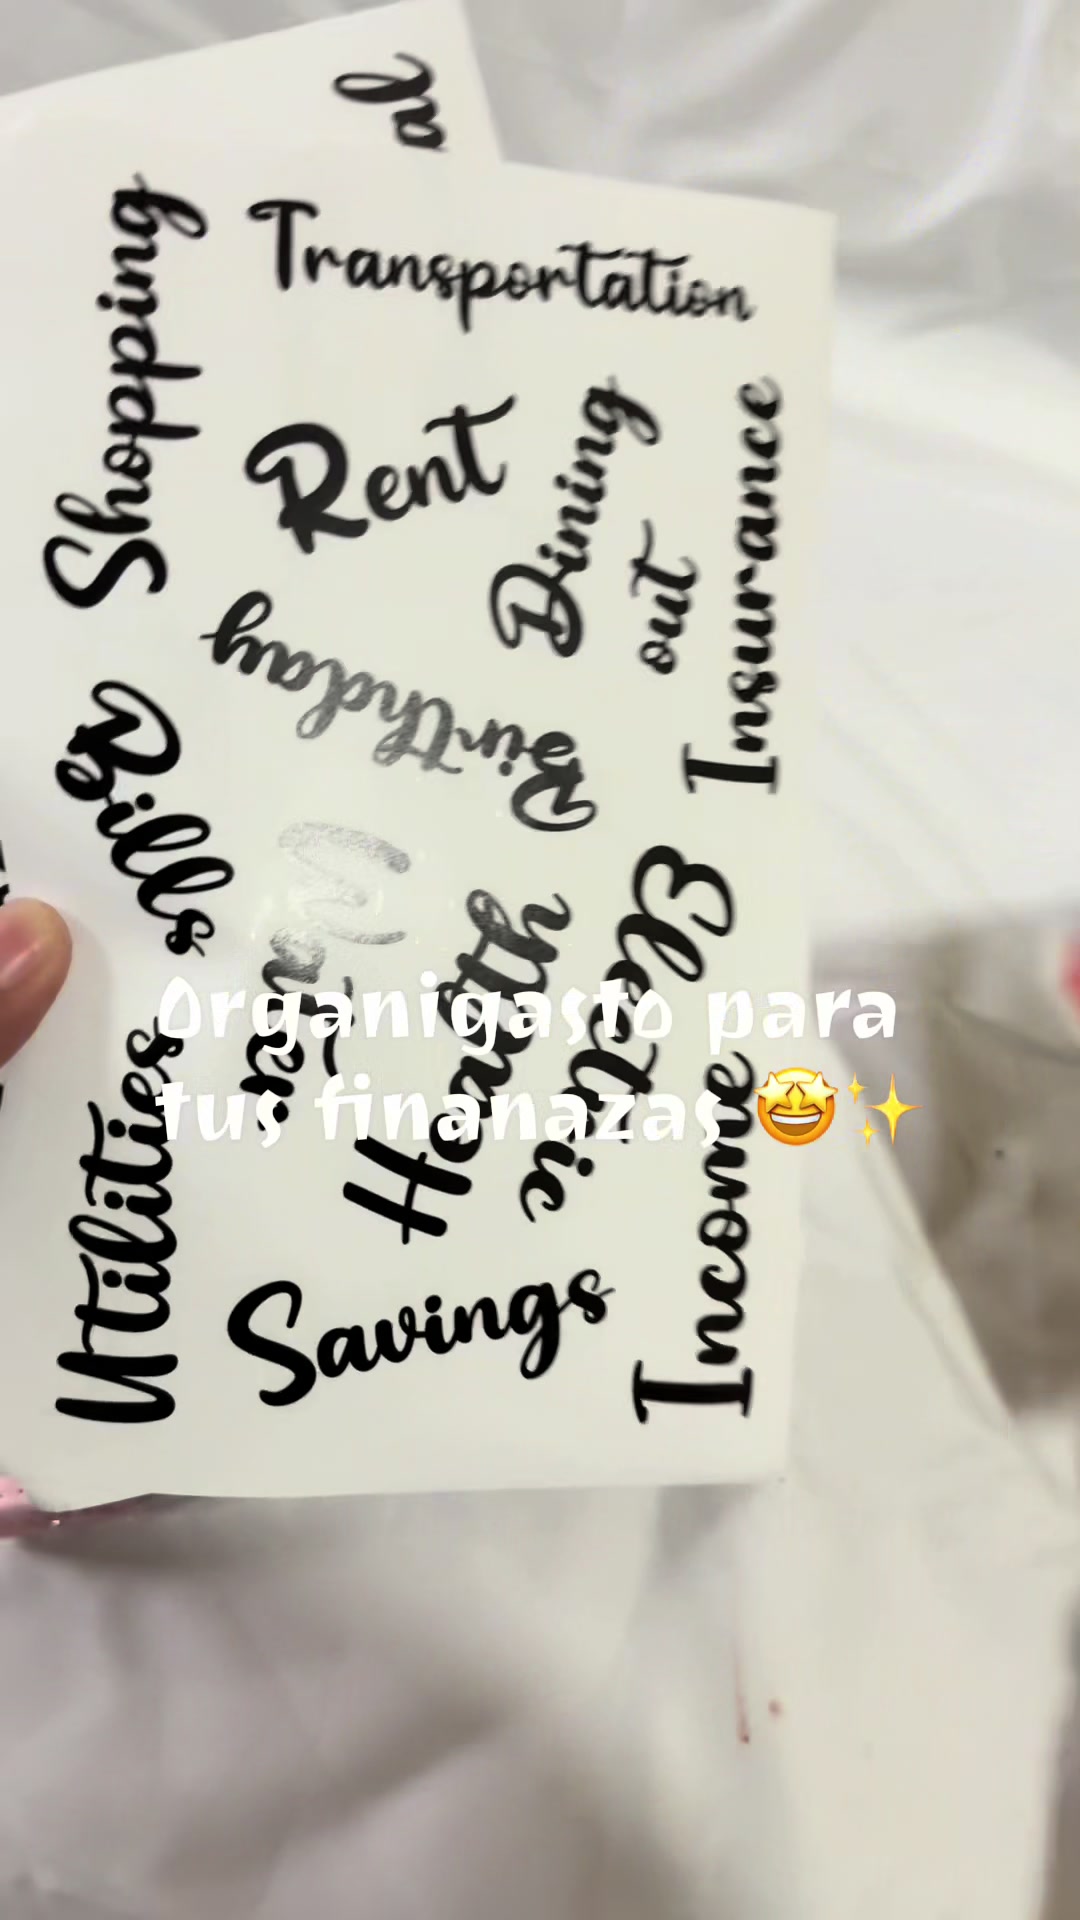 al
Shopping
Transportation
Rent
Dining
out
Insurance
Birthday
Bills
Water
Healthy
Electric
Utilities
Savings
Income
Organigasto para
tus finanazas 🤩✨